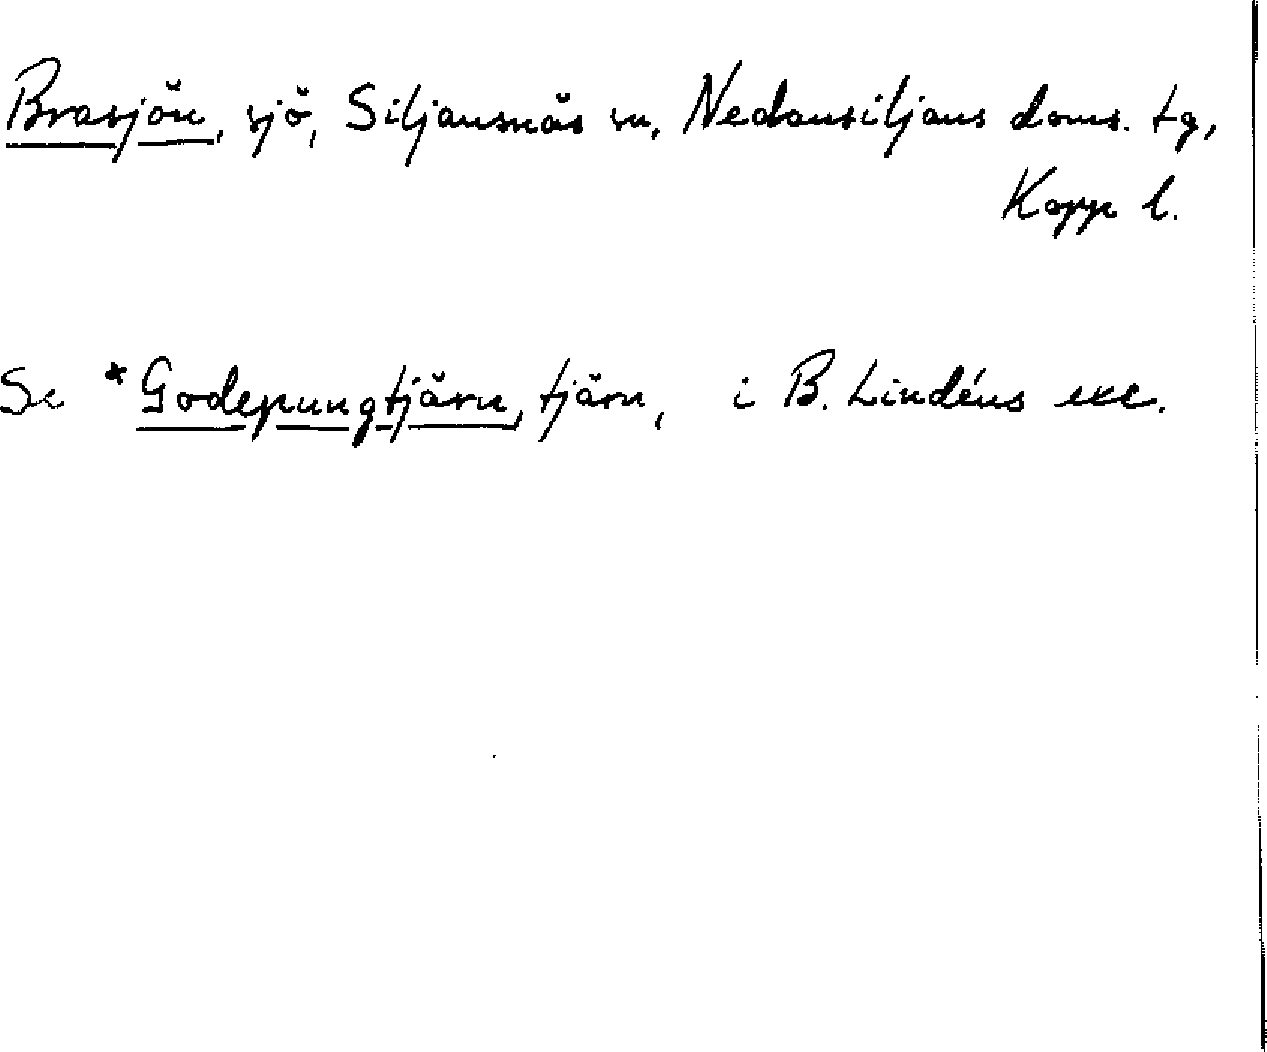 Brasjön, sjö, Siljansnäs sn, Nedansiljans doms. tg,
Kopp l.
Se *Godepungtjärn, tjärn, i B. Lindéns exc.